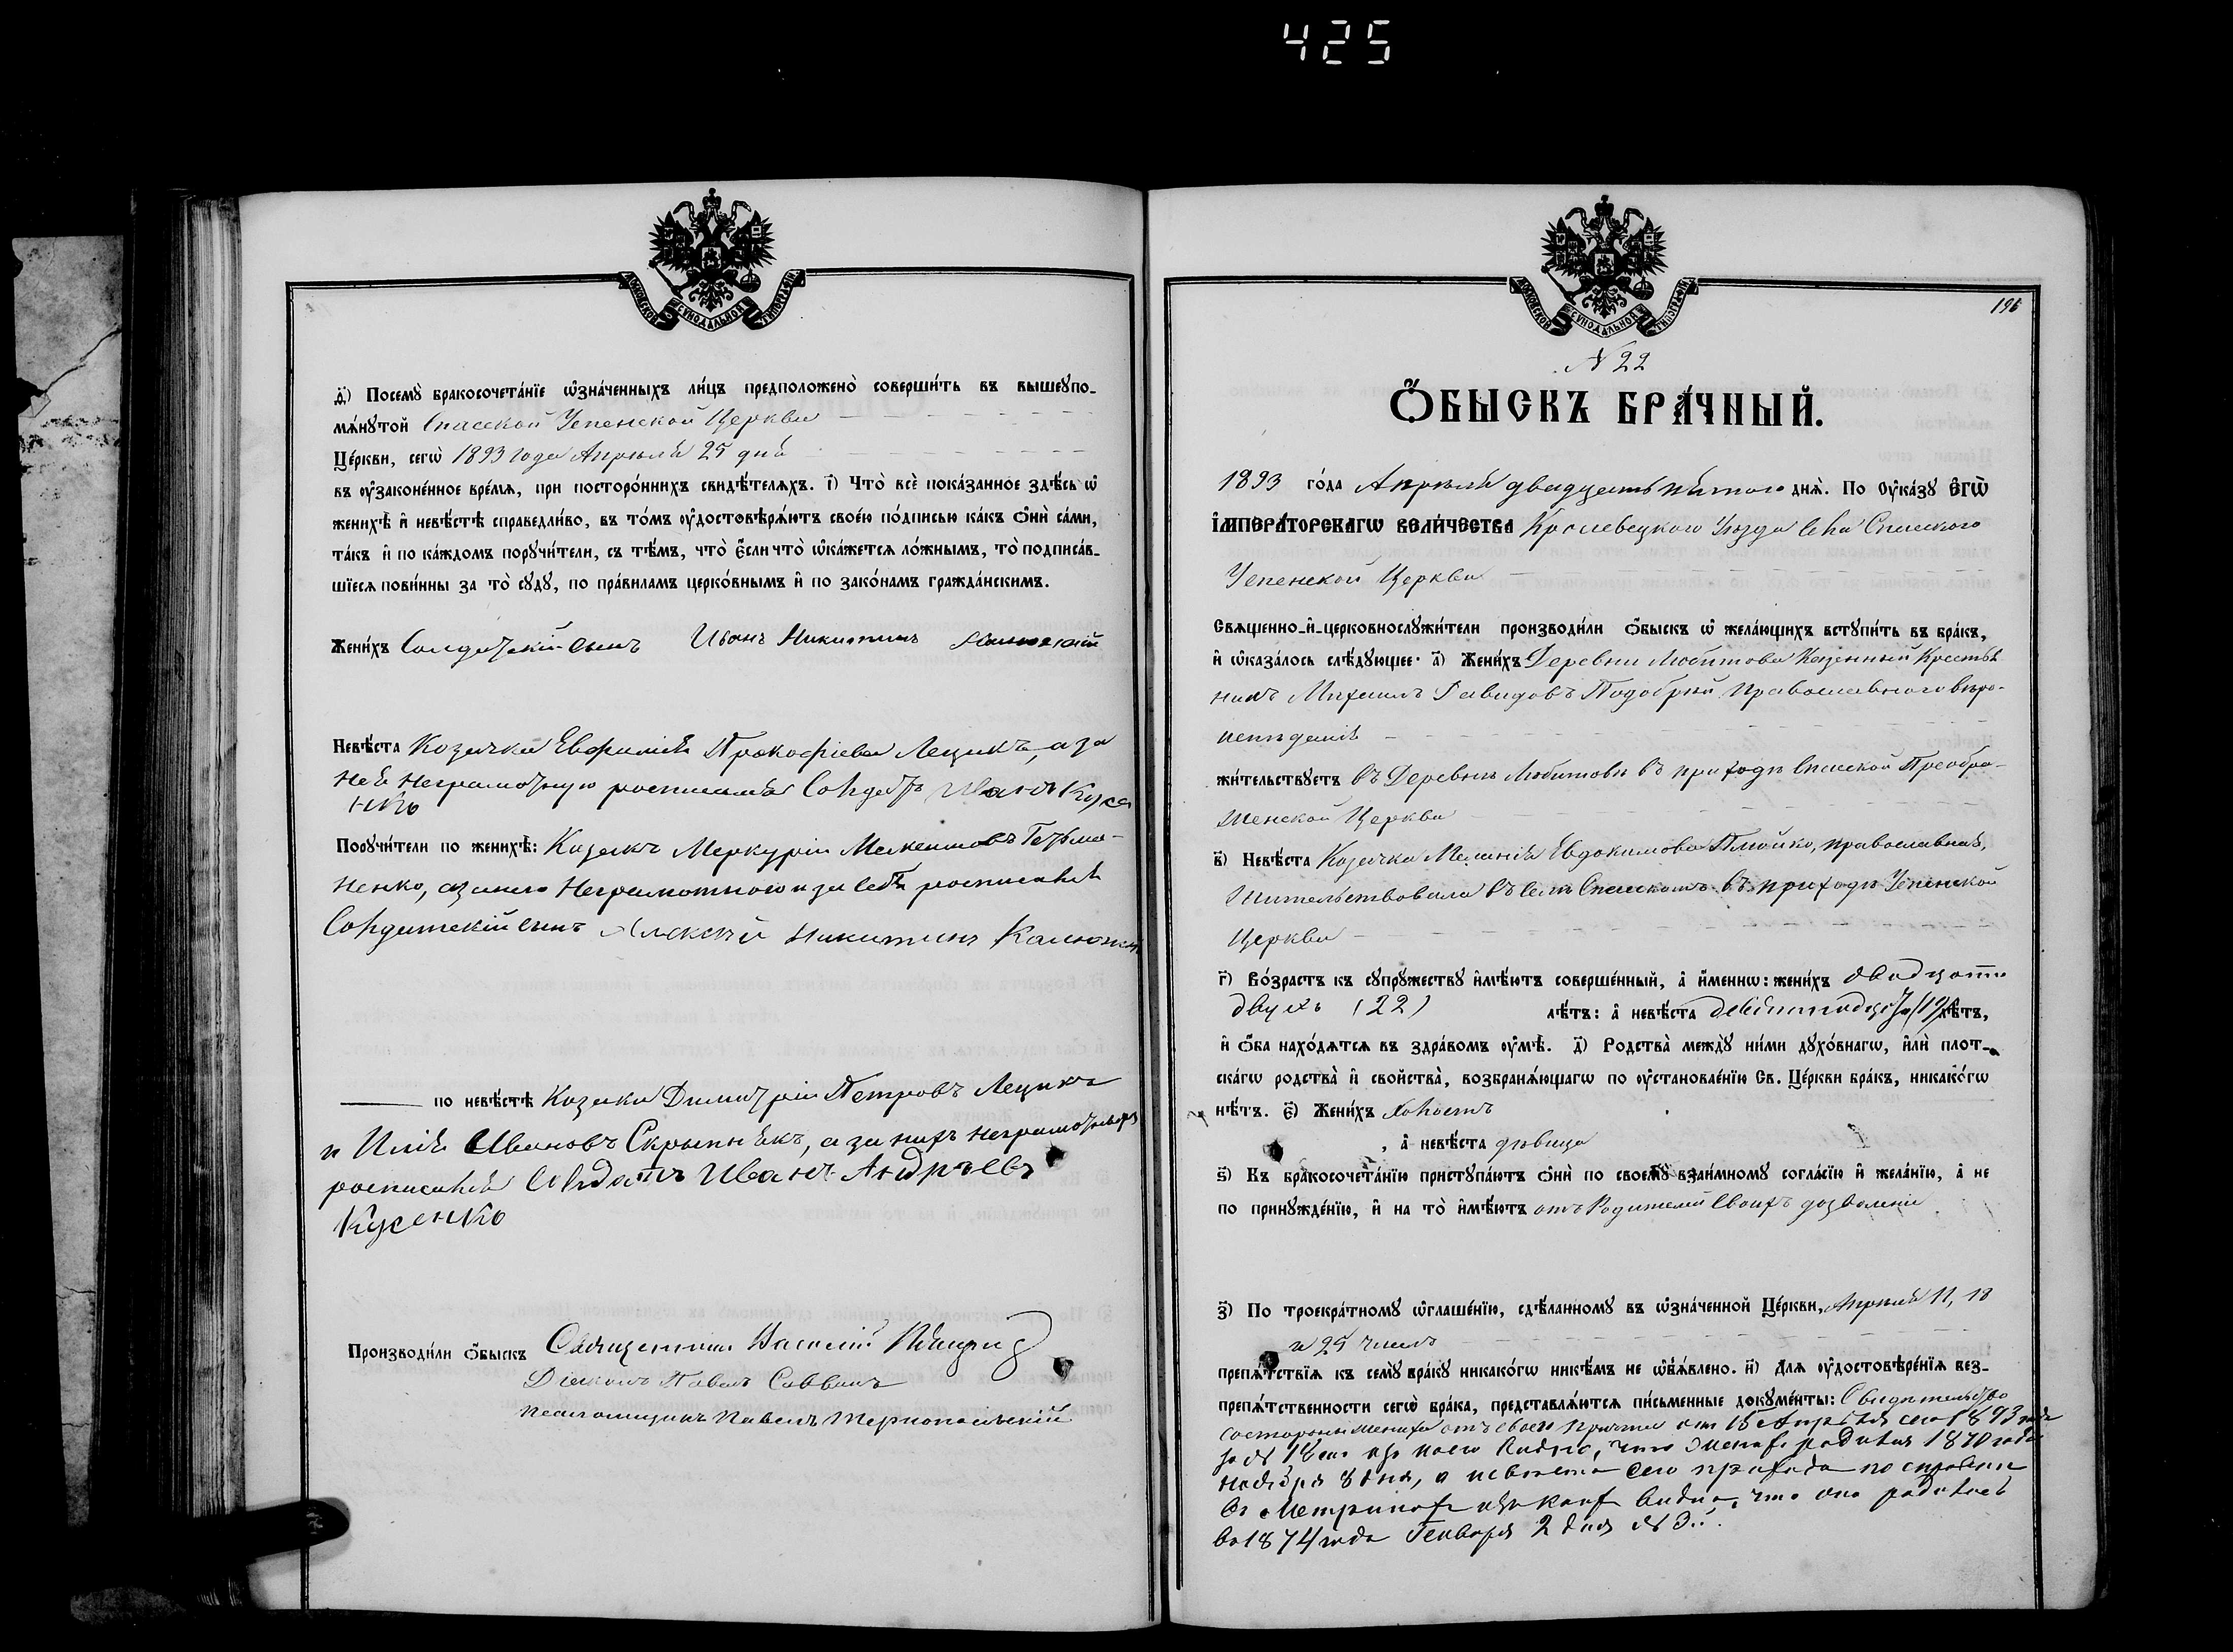 425
МОСКОВСКОЙ СУНОДАЛЬНОЙ ТИПОГРАФІИ
д҃) Посемꙋ̀ бракосочета́нїе ѡ҆зна́ченныхъ ли́цъ предположено̀ соверши́ть въ вышеꙋпо-
мѧ́нꙋтой Спасской Успенской Церкви
Це́ркви, сегѡ̀ 1893 года Апрѣля 25 дня
въ ᲂу҆законе́нное вре́мѧ, при посторо́ннихъ свидѣ́телѧхъ. і҃) Что̀ всѐ пока́занное здѣ́сь ѡ҆
женихѣ̀ и҆ невѣ́стѣ справедли́во, въ то́мъ ᲂу҆достовѣрѧ́ютъ свое́ю по́дписью ка́къ ѻ҆нѝ са́ми,
та́къ и҆ по ка́ждомъ порꙋчи́тели, съ тѣ́мъ, что̀ є҆́сли что̀ ѡ҆ка́жетсѧ ло́жнымъ, то̀ подписа́в-
шїесѧ пови́нны за то̀ сꙋдꙋ̀, по пра́виламъ церко́внымъ и҆ по зако́намъ гражда́нскимъ.
Жени́хъ Солдатскій сынъ Иванъ Никитинъ
Невѣ́ста Козачка Евфимія Прокофіева Лещикъ, а за
нея неграмотную росписался Солдатъ Иванъ Кусе
нко
Порꙋчи́тели по женихѣ̀: Козакъ Меркурій Гетьма-
ненко, а за него неграмотного и за себя росписался
Солдатскій сынъ Алексѣй Никитинъ Калюжный
по невѣ́стѣ Козаки Димитрій Петровъ Лещикъ
и Илія Ивановъ Скрыпнякъ, а за нихъ неграмотныхъ
росписался Солдатъ Иванъ Андрѣевъ
Кусенко
Производи́ли ѻ҆́быскъ Священникъ Василій
Діаконъ Павелъ Саввинъ
псаломщикъ Павелъ Тернопольскій
МОСКОВСКОЙ СУНОДАЛЬНОЙ ТИПОГРАФІИ
196
N 22
Ѻ҆́БЫСКЪ БРА́ЧНЫЙ.
1893 го́да Апрѣля двадцать пятого днѧ̀. По ᲂу҆ка́зꙋ Є҆ГѠ̀
І҆МПЕРА́ТОРСКАГѠ ВЕЛИ́ЧЕСТВА Кролевецкого Уѣзда села Спасского
Успенской Церкви
Свѧщенно-и҆-церковнослꙋжи́тели производи́ли ѻ҆́быскъ ѡ҆ жела́ющихъ встꙋпи́ть въ бра́къ,
и҆ ѡ҆каза́лось слѣ́дꙋющее: а҃) Жени́хъ Деревни Любитова Казенный Крестья
нинъ Михаилъ Давидовъ Подобрій православного вѣро-
исповѣданія
жи́тельствꙋетъ въ Деревнѣ Любитовѣ въ приходѣ Спасской Преобра-
женской Церкви
в҃) Невѣ́ста Козачка Меланія Евдокимова православная,
жительствовала въ селѣ Спасскомъ въ приходѣ Успенской
Церкви
г҃) Во́зрастъ къ сꙋпрꙋ́жествꙋ и҆мѣ́ютъ соверше́нный, а҆ и҆́меннѡ: жени́хъ двадцати
двухъ (22) лѣ́тъ: а҆ невѣ́ста девятнадцать (19) лѣ́тъ,
и҆ ѻ҆́ба нахо́дѧтсѧ въ здра́вомъ ᲂу҆мѣ̀. д҃) Родства̀ междꙋ̀ ни́ми дꙋхо́внагѡ, и҆лѝ плот-
ска́гѡ родства̀ и҆ свойства̀, возбранѧ́ющагѡ по ᲂу҆становле́нїю Св. Це́ркви бра́къ, никако́гѡ
нѣ́тъ. є҃) Жени́хъ холостъ
, а҆ невѣ́ста дѣвица
ѕ҃) Къ бракосочета́нїю пристꙋпа́ютъ ѻ҆нѝ по своемꙋ̀ взаи́мномꙋ согла́сїю и҆ жела́нїю, а҆ не
по принꙋжде́нїю, и҆ на то̀ и҆мѣ́ютъ отъ Родителей своихъ дозволеніе
з҃) По троекра́тномꙋ ѡ҆глаше́нїю, сдѣ́ланномꙋ въ ѡ҆зна́ченной Це́ркви, Апрѣля 11, 18
и 25 числъ
препѧ́тствїѧ къ семꙋ̀ бра́кꙋ никако́гѡ никѣ́мъ не ѡ҆б̾ѧ́влено. и҃) Длѧ ᲂу҆достовѣре́нїѧ без-
препѧ́тственности сегѡ̀ бра́ка, представлѧ́ютсѧ пи́сьменные докꙋме́нты: Свидѣтельство
со стороны жениха отъ своего причта отъ 15 Апрѣля сего 1893 года
изъ коего видно, что женихъ родился 1870 года
ноября 8 дня, а невѣста сего прихода по справки
въ Метрическихъ книгахъ видно, что она родилась
въ 1874 года Генваря 2 дня № 3.